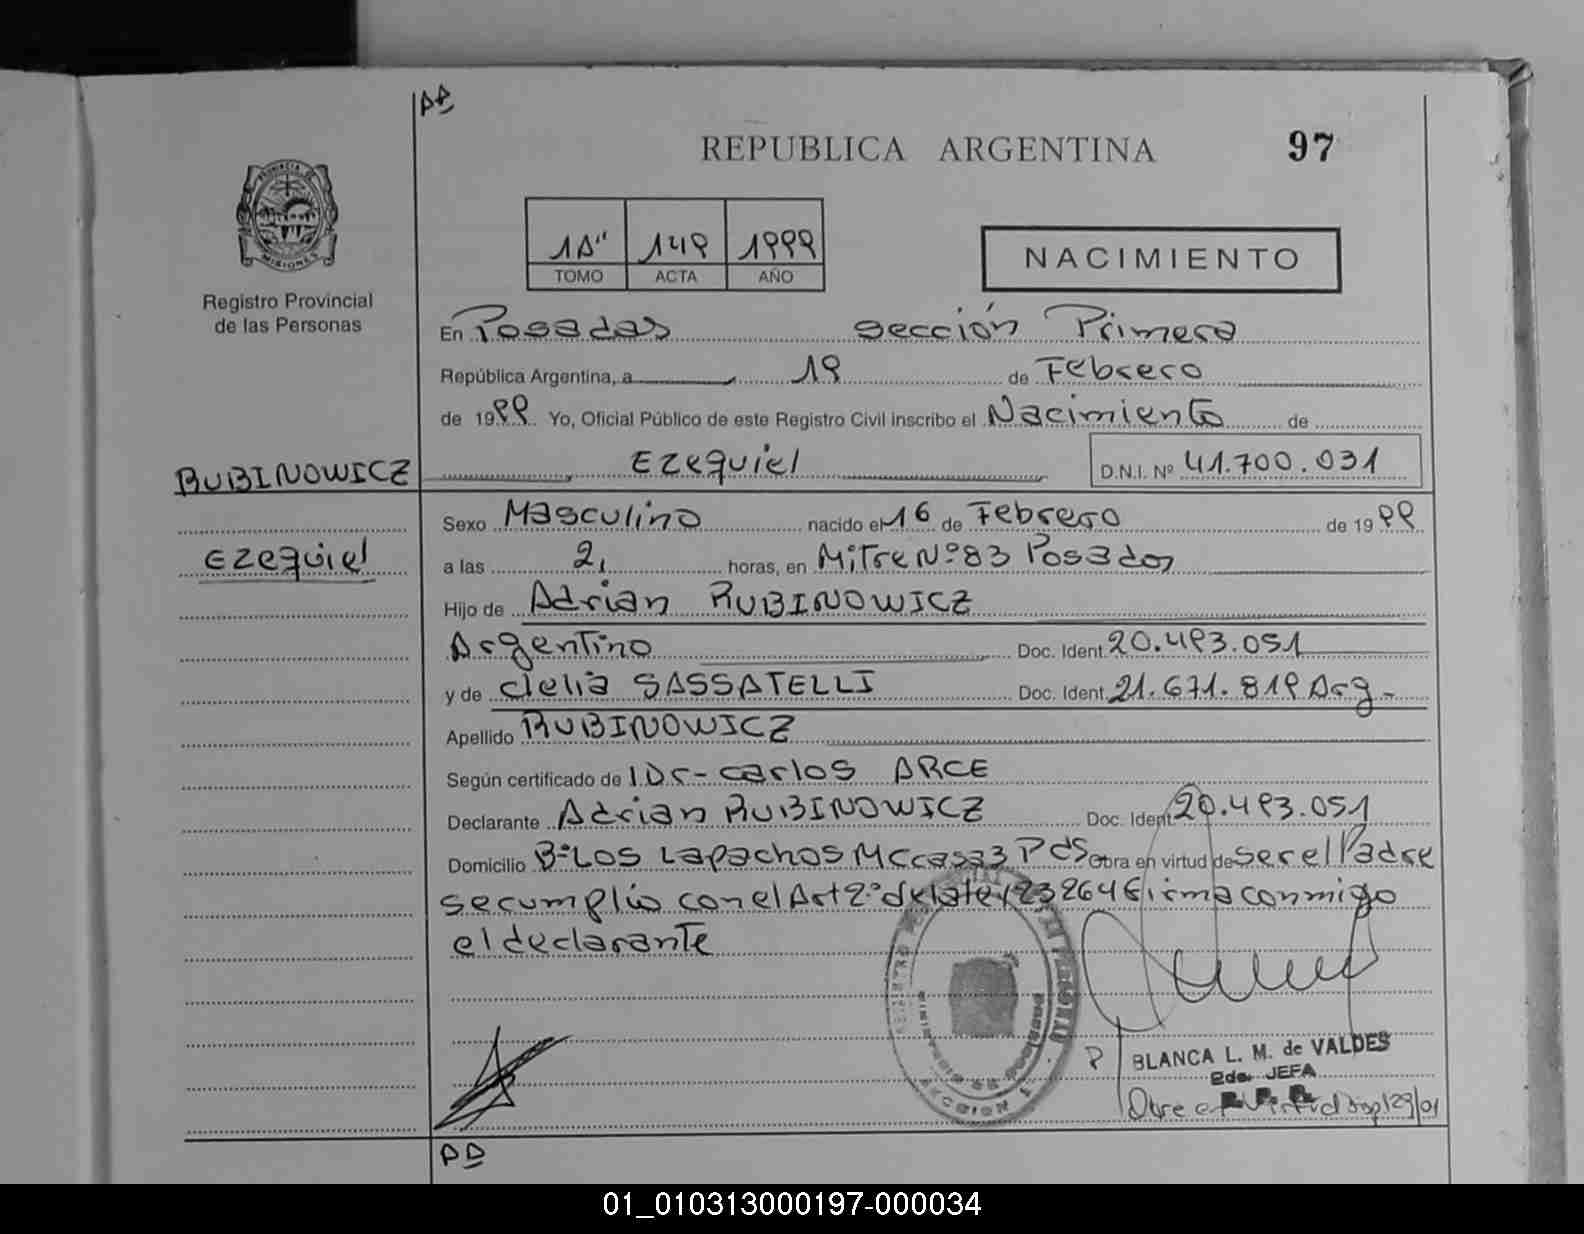 REPUBLICA ARGENTINA
97
PROVINCIA DE
MISIONES
Registro Provincial
de las Personas
1A" 149 1999
TOMO ACTA AÑO
NACIMIENTO
En Posadas sección Primera
República Argentina, a 19 de Febrero
de 1999 Yo, Oficial Público de este Registro Civil inscribo el Nacimiento de
RUBINOWICZ
Ezequiel D.N.I. Nº 41.700.031
Sexo Masculino nacido el 16 de Febrero de 1999
Ezequiel
a las 2, horas, en Mitre Nº 83 Posadas
Hijo de Adrian RUBINOWICZ
Argentino Doc. Ident. 20.493.051
y de clelia SASSATELLI Doc. Ident. 21.671.819 Arg.-
Apellido RUBINOWICZ
Según certificado de Dr- carlos ARCE
Declarante Adrian RUBINOWICZ Doc. Ident. 20.493.051
Domicilio Bº Los Lapachos MC casa 3 Pds Obra en virtud de ser el Padre
se cumplio con el Art 2º de la ley 23264 firma conmigo
el declarante
BLANCA L. M. de VALDES
2da. JEFA
01_010313000197-000034